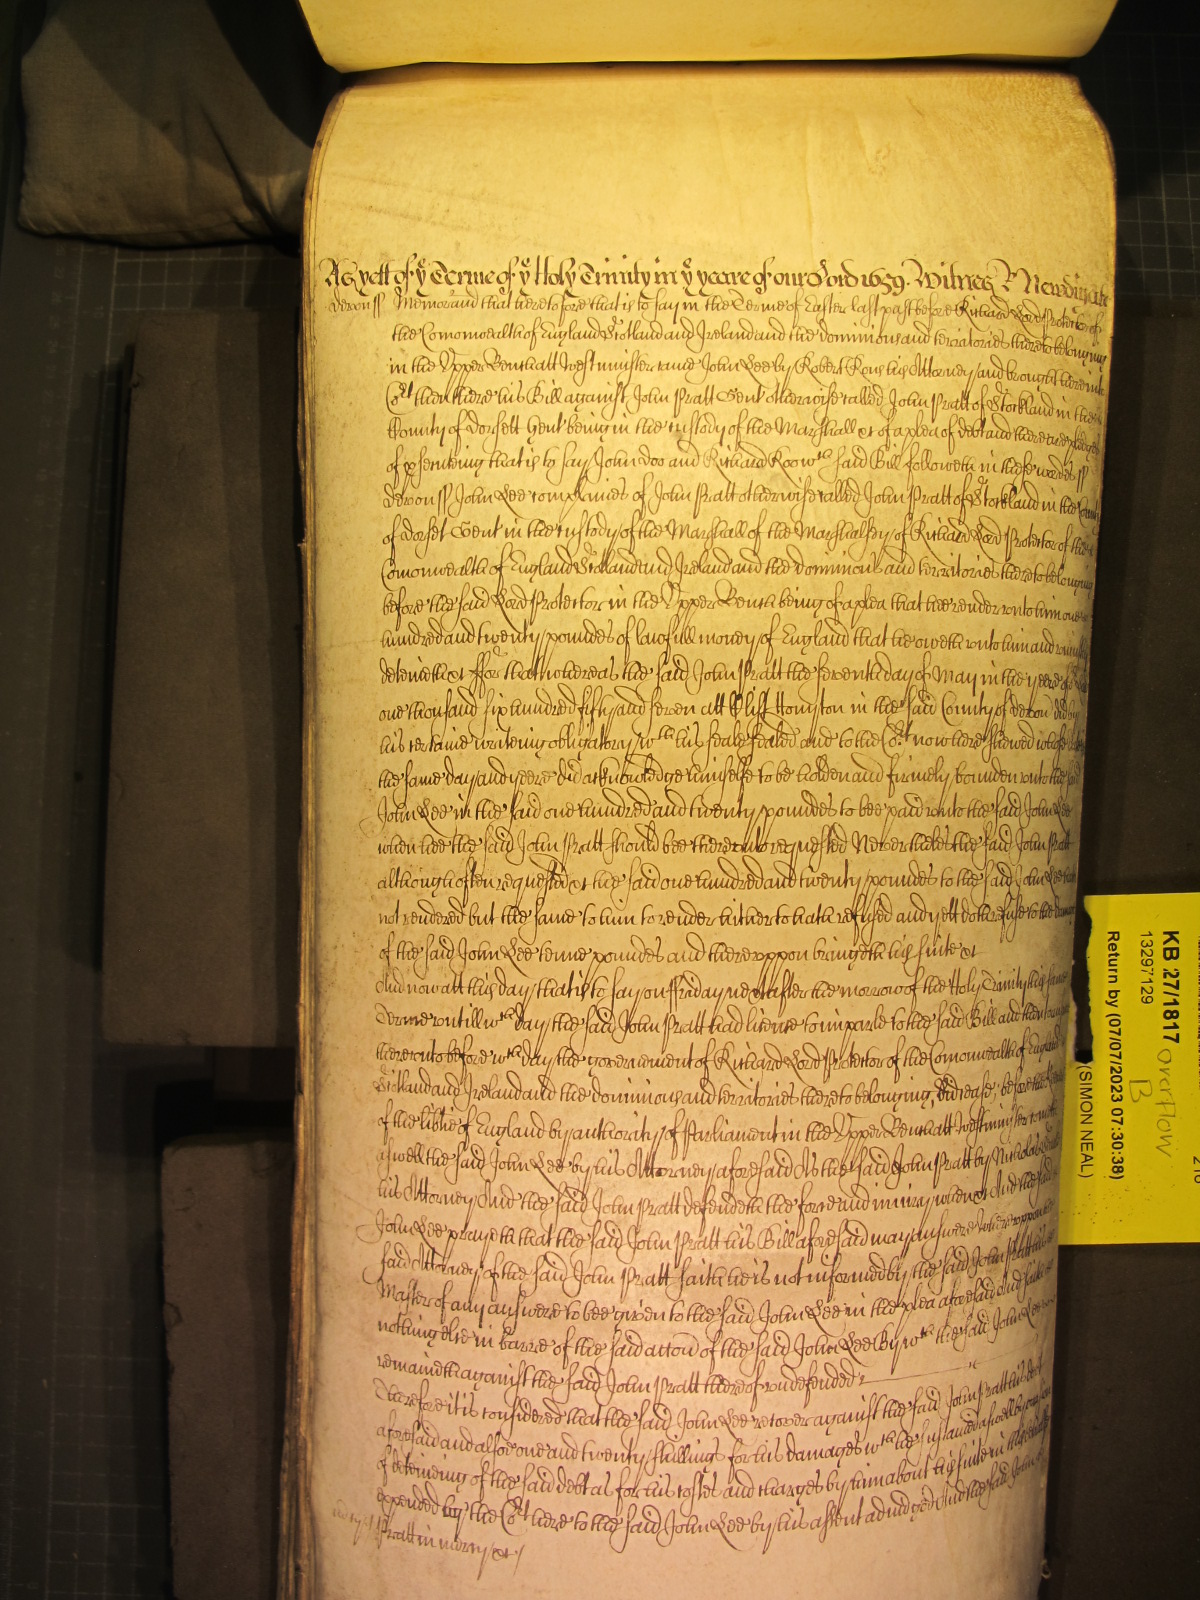 As yett of ye Terme of ye Holy Trinity in ye yeare of our Lord 1659. Witnes R Newdigate
Devon ss Memorand that heretofore that is to say in the Terme of Easter last past before Richard Lord Protector of
the Comonwealth of England Scotland and Ireland and the dominions and territories thereto belonging
in the Upper Bench att Westminster came John Lee by Robert Rous his Attorney and brought here into
Cort then there his Bill against John Pratt Gent otherwise called John Pratt of Stockland in the
County of Dorsett Gent being in the custody of the Marshall &c of a plea of debt and there are pledges
of psenting that is to say John Doo and Richard Roo wch said Bill followeth in these wordes ss
Devon ss John Lee complaines of John Pratt otherwise called John Pratt of Stockland in the County
of Dorset Gent in the custody of the Marshall of the Marshalsey of Richard Lord Protector of the
Comonwealth of England Scotland and Ireland and the dominions and territories thereto belonging
before the said Lord Protector in the Upper Bench being of a plea that hee render unto him one
hundred and twenty poundes of lawfull money of England that he oweth unto him and uniustly
deteineth &c ffor that whereas the said John Pratt the seventh day of May in the yeere of
one thousand six hundred fifty and seven att Clist Honyton in the said County of Devon did by
his certaine writeing obligatory wth his seale sealed and to the Cort now here shewed whose date
the same day and yeere did acknowledge himselfe to be holden and firmely bounden unto the said
John Lee in the said one hundred and twenty poundes to bee paid unto the said John Lee
when hee the said John Pratt should bee thereunto requested Neverthelesse the said John Pratt
although often requested &c the said one hundred and twenty poundes to the said John Lee hath
not rendered but the same to him to render hitherto hath refused and yett doth refuse to the damage
of the said John Lee tenne poundes and thereuppon bringeth his suite &c
And now att this day that is to say on ffriday next after the morrow of the Holy Trinity this same
Terme untill wch day the said John Pratt had licence to imparle to the said Bill and then to answer
thereunto before wch day the government of Richard Lord Protector of the Comonwealth of England
Scotland and Ireland and the dominions and territories thereto belonging did cease, before the Keepers
of the libtie of England by authority of Parliament in the Upper Bench att Westminster cometh
aswell the said John Lee by his Attorney aforesaid As the said John Pratt by Nicholas
his Attorney And the said John Pratt defendeth the force and iniury when &c And the said
John Lee prayeth that the said John Pratt his Bill aforesaid may answere Whereuppon the
said Attorney of the said John Pratt saith he is not informed by the said John Pratt his
Master of any answere to bee given to the said John Lee in the plea aforesaid And saith
nothing else in barre of the said accon of the said John Lee By wch the said John Lee
remaineth against the said John Pratt thereof undefended &c
Therefore it is considered that the said John Lee recover against the said John Pratt his debt
aforesaid and alsoe one and twenty shillings for his damages wch he susteined aswell by occasion
of deteineing of the said debt as for his costes and charges by him about his suite in this behalfe
expended by the Cort here to the said John Lee by his assent adiudged And the said John
Pratt in mercy &c
KB 27/817
13297129
Return by (07/07/2023 07:30:38)
(SIMON NEAL)
overflow
B